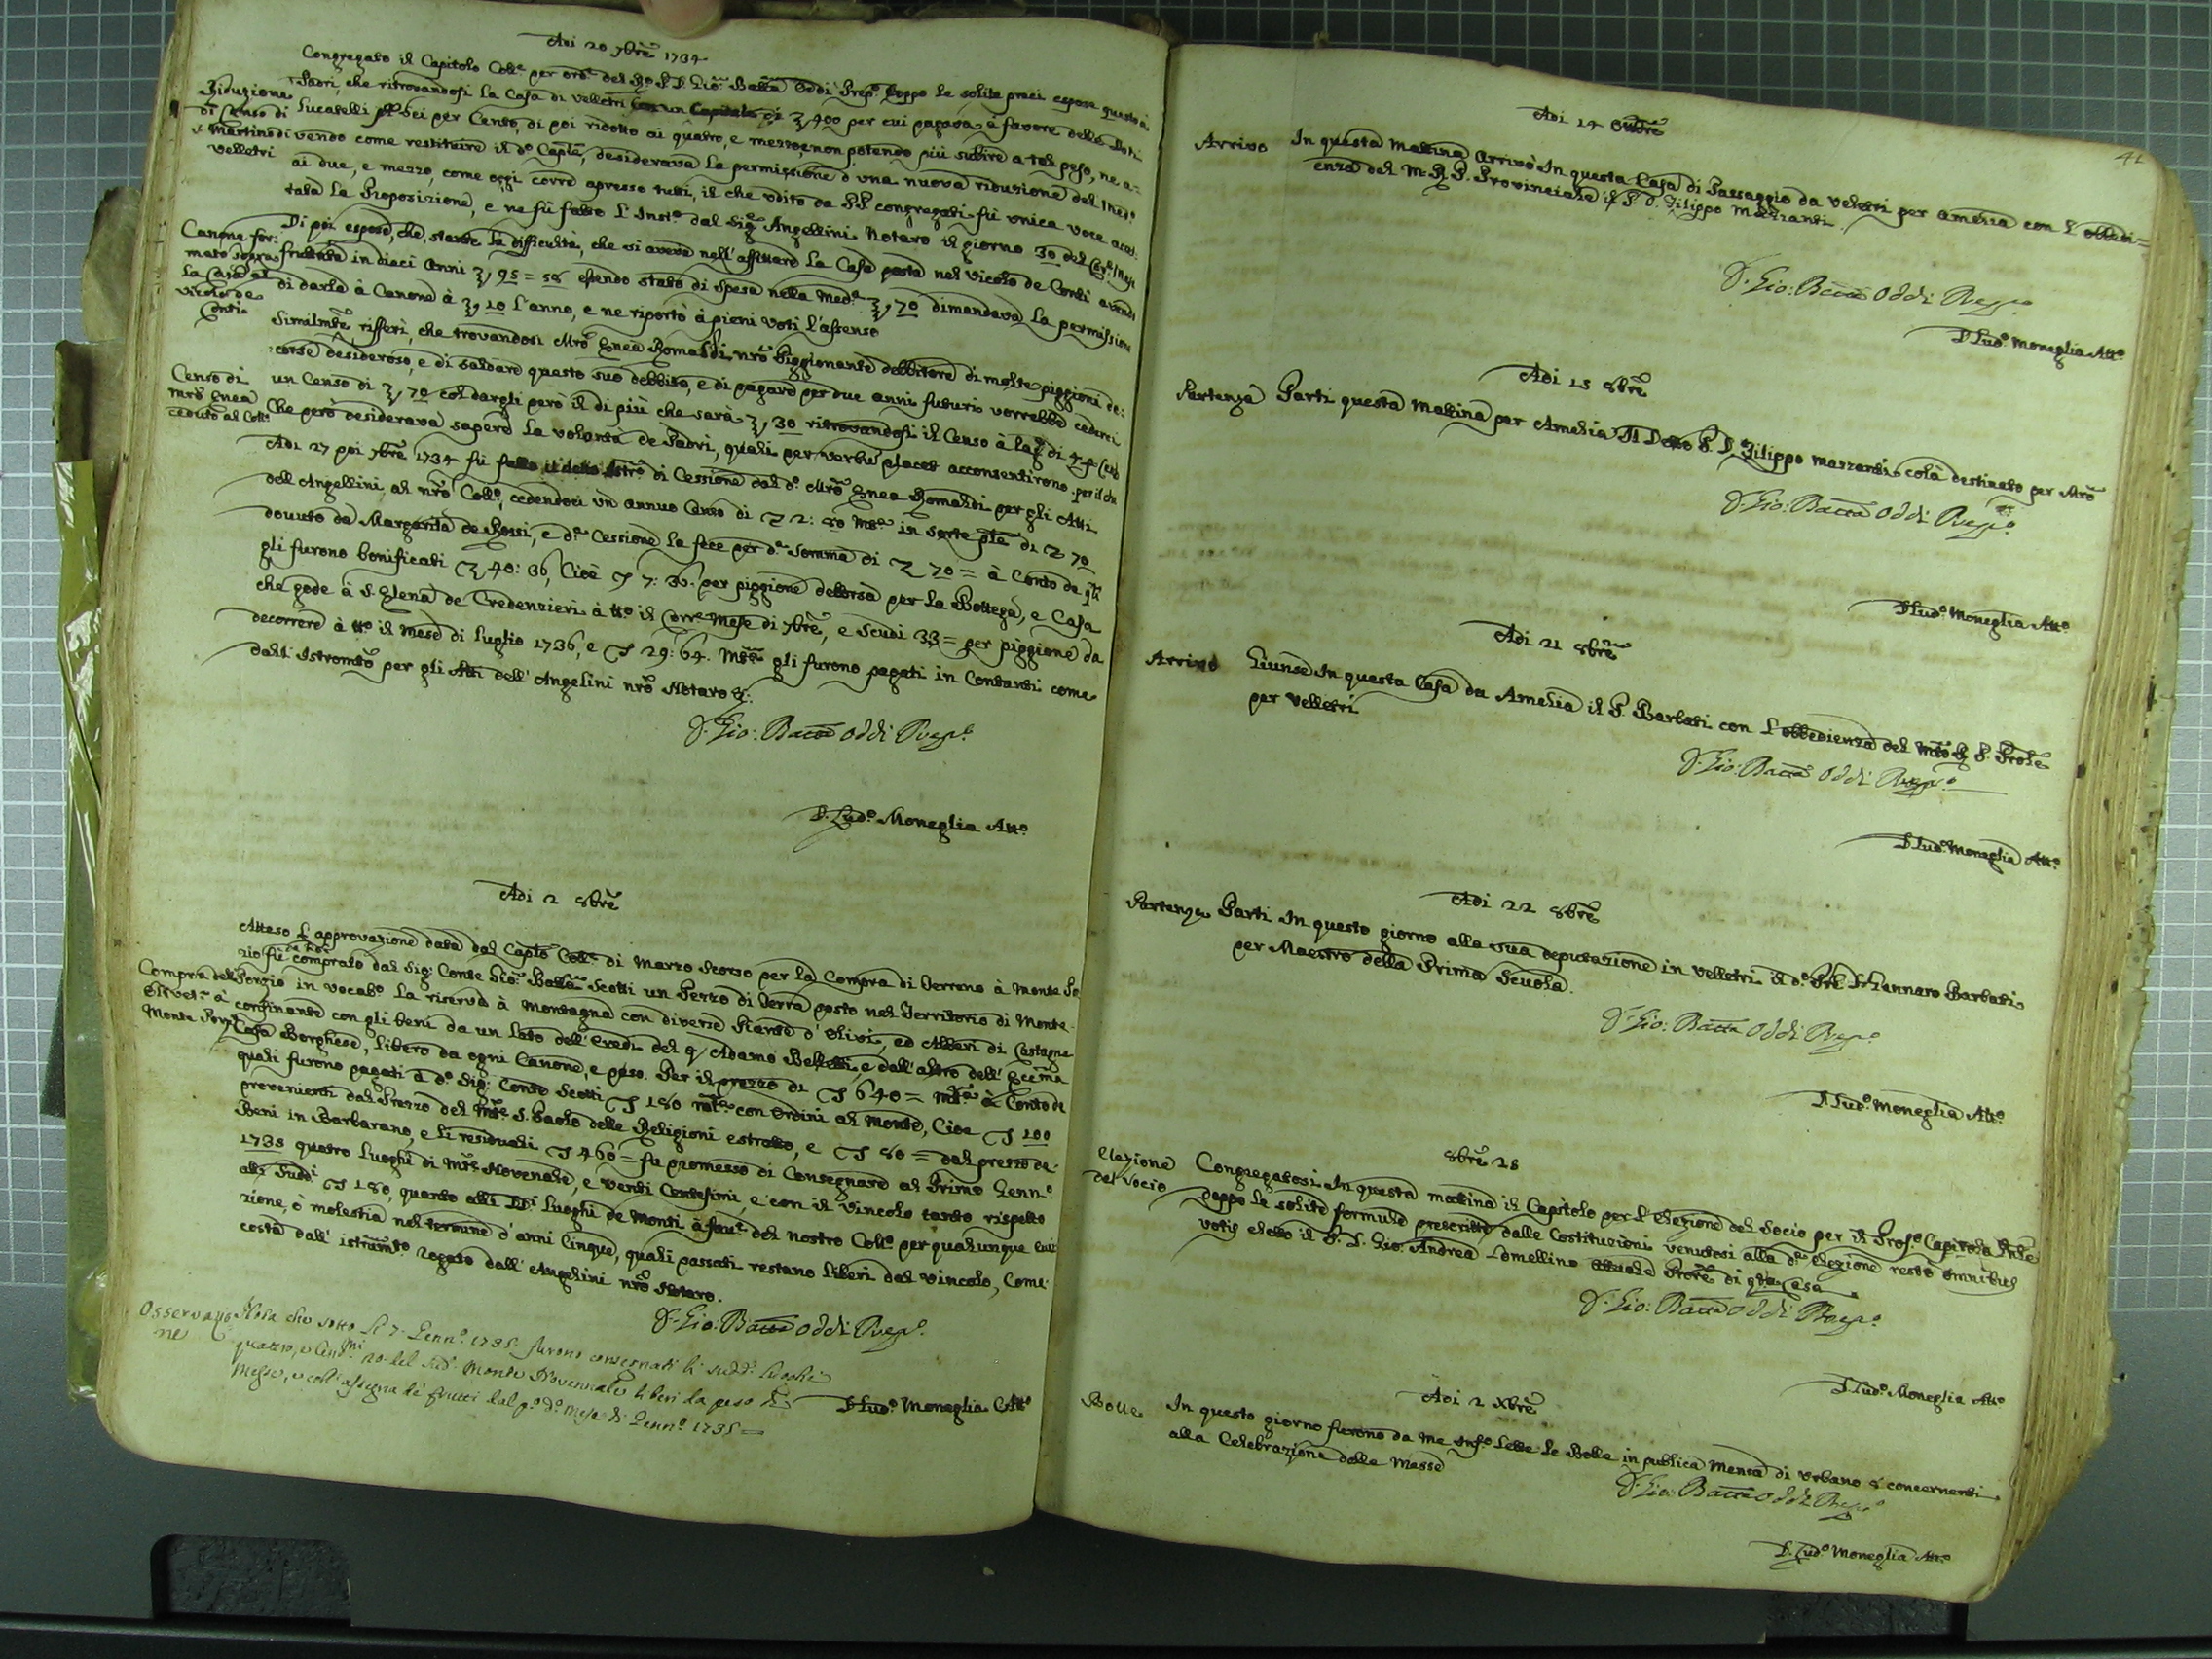 Adi 20 7bre 1734
Congregato il Capitolo Coll.e per ord.e del R.o P. D. Gio: Batta Oddi Prep.o doppo le solite preci espose questo à
Padri, che ritrovandosi la Casa di Velletri con un Capitale di 400 per cui pagava à favore delle
Riduzione
di Censo di
S. Martino di
Velletri
Lucatelli sei per Cento, di poi ridotto ai quatro, e mezzo, e non potendo più subire a tal peso, ne a-
vendo come restituire il d.o Caple, desiderava la permissione d'una nuova riduzione del Med.o
ai due, e mezzo, come oggi corre apresso tutti, il che udito da PP. congregati fù unica voce accet-
tata la Proposizione, e ne fù fatto l'Inst.o dal Sig.e Angellini Notaro il giorno 30 del
Canone for:
mato sopra
la Casa al
vicolo de
Conti
Di poi espose, che, stante la difficultà, che si aveva nell'affittare la Casa posta nel vicolo de Conti avendo
fruttato in dieci Anni 95=58 essendo stato di spesa nella Med.a 70 dimandava la permissione
di darla à Canone à 10 l'anno, e ne riportò à pieni voti l'assenso
Similmte rifferì, che trovandosi Mro Enea Romaldi nro Piggionante debbitore di molte piggioni de:
corse desideroso, e di saldare questo suo debbito, e di pagare per due anni futuri vorrebbe cederci
Censo di
Mro Enea
ceduto al Coll.o
un Censo di 70 col dargli però il di più che sarà 30 ritrovandosi il Censo à
Che però desiderava sapere la volontà de Padri, quali per verbū placet acconsentirono per il che
Adi 27 poi 7bre 1734 fù fatto il detto Istro di Cessione dal d.o Mro Enea Romaldi per gli Atti
dell Angellini al nro Coll.o, cedendoci un annuo Censo di 2:80 Mta in sorte ple di 70
dovuto da Margarita de Rossi, e d.a Cessione la fece per d.a Somma di 70= à Conto de qli
gli furono bonificati 40:36, Cioè 7:36. per piggione dellorsa per la Bottega, e Casa
che gode à S. Elena de Credenzieri à tt.o il Corre Mese di 7bre, e Scudi 33= per piggione da
decorrere à tt.o il Mese di Luglio 1736, e 29:64. Mta gli furono pagati in Contanti come
dall'Istromto per gli Atti dell'Angelini nro Notaro &:
D. Gio: Batta Oddi Prep.o
D. Lud.o Moneglia Att.o
Adi 2 8bre
Atteso l'approvazione data dal Caplo Coll.e di Marzo scorso per la Compra di Terreno à Monte Po
rzio fù comprato dal Sig: Conte Gio: Batta Scotti un Pezzo di Terra posto nel Territorio di Monte
Compra dell
à
Monte Porzio
Porzio in vocab.o la riserva à Montagna con diverse Piante d'Olivi, ed Alberi di Castagne
confinante con gli beni da un lato dell'Eredi del q Adamo Belletti, e dall'altro dell'Eccma
Casa Borghese, libero da ogni Canone, e peso. Per il prezzo di 640= Mta à Conto de
quali furono pagati à d.o Sig: Conte Scotti 180 mta con Ordini al Monte, Cioè 100
provenienti dal Prezzo del Mte S. Paolo delle Religioni estratto, e 80= dal prezzo de
Beni in Barbarano, e li residuali 460= fu promesso di Consegnare al Primo Genn.o
1735 quatro Luoghi di Mte Novenale, e venti Centesimi, e con il vincolo tanto rispetto
alli Sudd.i 180, quanto alli DDi Luoghi de Monti à fav.e del nostro Coll.o per qualunque evi-
zione, ò molestia nel termine d'anni Cinque, quali passati restano liberi dal vincolo, Come
costa dall'istrumto rogato dall'Angelini nro Notaro.
D. Gio: Batta Oddi Prep.o
Osservazio
ne
Nota che sotto li 7. Genn.o 1735. furono consegnati li sudd.i Luoghi
quattro, e Centmi 20 del Sud.o Monte Novennale liberi da peso
Messe, e coll'assegna de frutti dal p.o d.o Mese di Genn.o 1735=
D. Lud.o Moneglia Att.o
41
Adi 14 Ottbre
Arrivo
In questa Mattina arrivò In questa Casa di Passaggio da Veletri per Amelia con l'obbedi=
enza del M. R. P. Provinciale il P. D. Filippo Mazzanti.
D. Gio: Batta Oddi Prep.o
D. Lud.o Moneglia Att.o
Adi 15 8bre
Partenza
Partì questa Mattina per Amelia Il Detto P. D. Filippo Mazzanti colà destinato per Mro
D. Gio: Batta Oddi Prep.o
D. Lud.o Moneglia Att.o
Adi 21 8bre
Arrivo
Giunse In questa Casa da Amelia il P. Barbati con l'obbedienza del Mto R P. Prole
per Velletri
D. Gio: Batta Oddi Prep.o
D. Lud.o Moneglia Att.o
Adi 22 8bre
Partenza
Partì In questo giorno alla sua deputazione in Velletri il d.o Pre D. Gennaro Barbati
per Maestro della Prima Scuola.
D. Gio: Batta Oddi Prep.o
D. Lud.o Moneglia Att.o
8bre 28
Elezione
del Socio
Congregatosi In questa mattina il Capitolo per l'Elezione del Socio per il Pross.o Capitolo
doppo le solite formule prescritte dalle Costituzioni venutosi alla d.a elezione restò omnibus
votis eletto il P. D. Gio: Andrea Lomellino attuale Prore di qta Casa
D. Gio: Batta Oddi Prep.o
D. Lud.o Moneglia Att.o
Adi 2 Xbre
Bolle
In questo giorno furono da me Inf.o lette le Bolle in publica Mensa di Urbano 8 concernenti
alla Celebrazione delle Messe
D. Gio: Batta Oddi Prep.o
D. Lud.o Moneglia Att.o